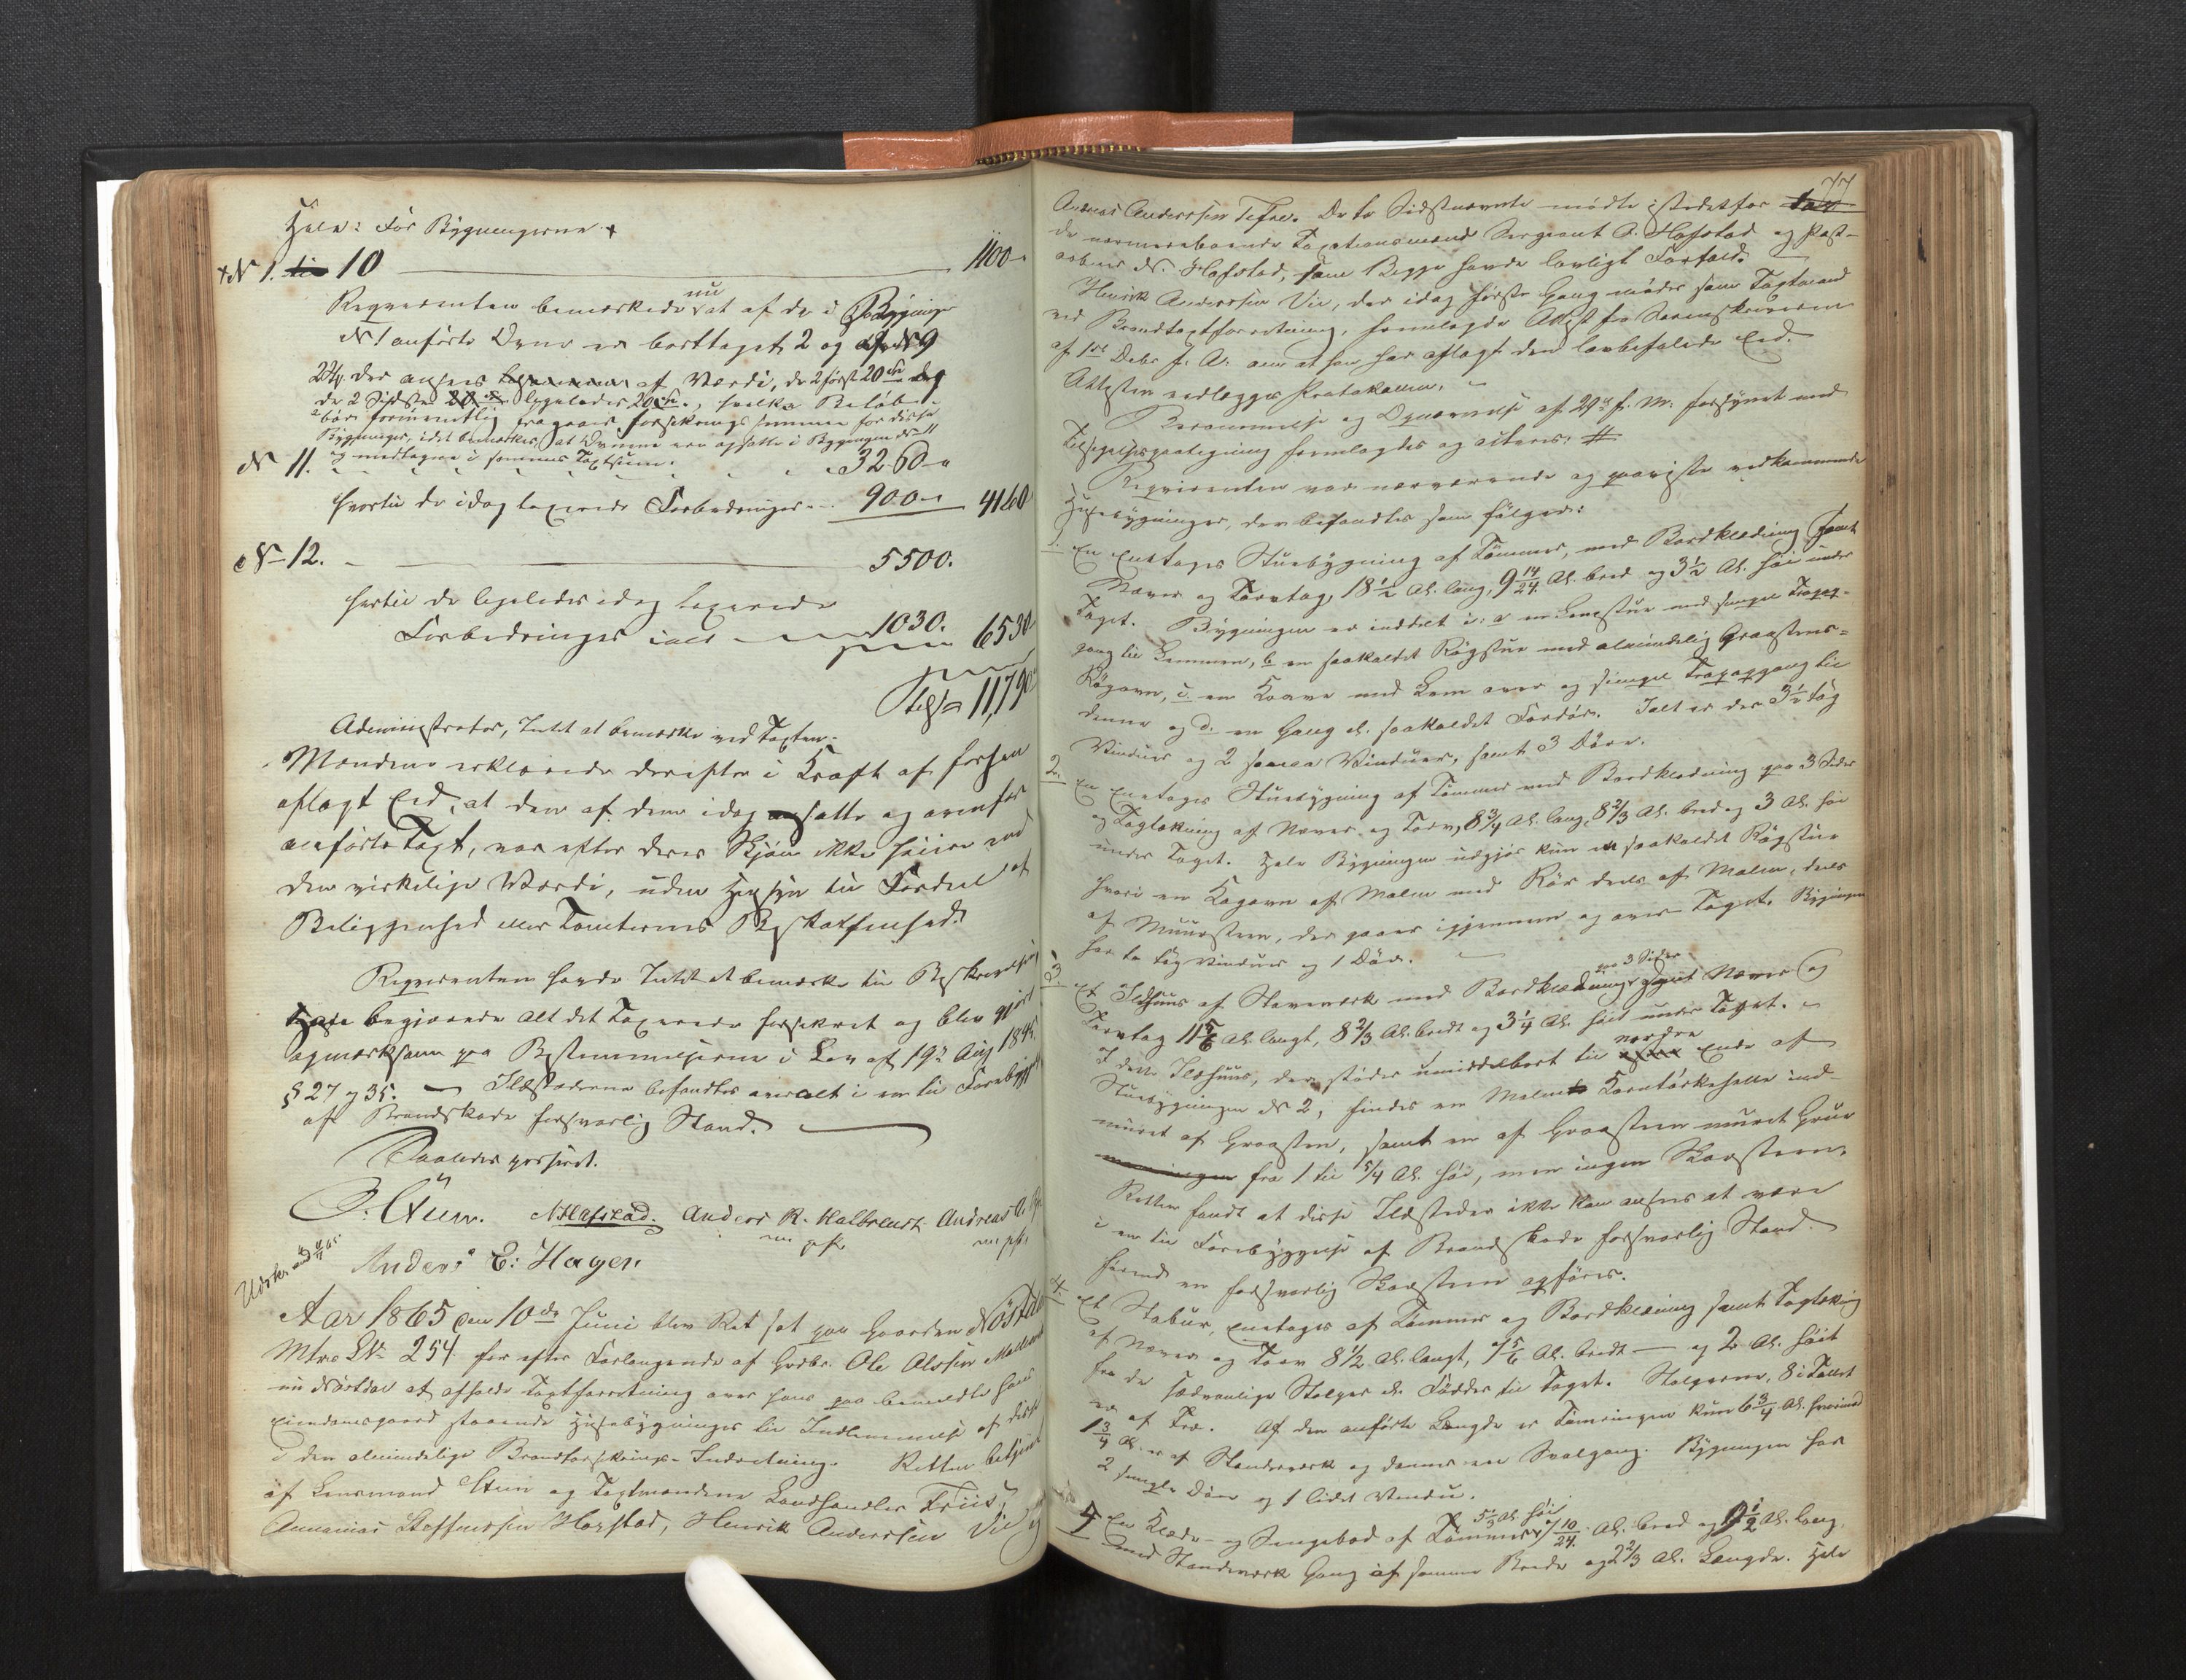 Hele: For Bygningerne +
+ N 1. til 10 1100 -
Reqvirenten bemærkede nu at af de i Bygningen
N 1 anførte Ovne er borttaget 2 og af N 9
2 der ansees af Værdi, de 2 første 20 og
de 2 Sidste ligeledes 20, hvilke Beløb
bør fragaaes forsikrings summen for disse
Bygninger, idet bemærkes, at Ovnene ere opsatte i Bygningen N 11
og medtagne i sammes Taxtsum.
N 11. 3260 -
hvortil de idag taxerede Forbedringer 900 - 4160
N 12. 5500.
hertil de ligeledes idag taxerede
Forbedringer ialt 1030. 6530
Tilss 11,790
Administrator, Intet at bemærke ved Taxten.
Mændene erklærede derefter i Kraft af forhen
aflagt Eed, at den af dem idag ansatte og ovenfor
anførte Taxt, var efter deres Skjøn ikke høiere end
den virkelige Værdi, uden Hensyn til Fordeel af
Beliggenhed eller Tomternes Beskaffenhed.
Reqvirenten havde Intet at bemærke til Beskrivelsen
begjærede Alt det Taxerede forsikret og blev gjort
opmærksom paa Bestemmelserne i Lov af 19de Aug 1845
§ 27 og 35. — Ildstederne befandtes overalt i en til Forebyggelse
af Brandskade forsvarlig Stand.
Saaledes passeret.
N Hafstad. Anders R. Kalbrenst. Andreas A.
m. p. P. m. p. P.
Anders E: Hagen
Aar 1865 den 10de Juni blev Ret sat paa Gaarden Nöstdal
Mtr. L No 254 for efter Forlangende af Gbr. Ole Olsen
Nöstdal at afholde Taxtforretning over hans paa bemeldte hans
Eiendomsgaard staaende Huusebygninger til Indlemmelse af disse
i den almindelige Brandforsikrings-Indretning. Retten betjent
af Lensmand Steen og Taxtmændene Landhandler Friis,
Ananias Steffensen Hopstad, Henrik Anderssen Vie og
77
Andreas Anderssen Tefre. De to Sidstnævnte mødte istedetfor
de nærmereboende Taxationsmænd Sergeant A. Hafstad og Post-
aabner N. Hafstad, som Begge havde lovligt Forfald.
Henrik Anderssen Vie, der idag første Gang møder som Taxtmand
ved Brandtaxtforretning, fremlagde Attest fra Sorenskriveren
af 1ste Debr f. A. om at han har aflagt den lovbefalede Eed.
Attesten vedlægges Protokollen.
Berammelse og Opnævnelse af 29de f. M. forsynet med
Tilsigelsespaategning fremlagdes og acteres: #
Reqvirenten var nærværende og paaviste vedkommende
Huusebygninger, der befandtes som følger:
1. En Eenetages Stuebygning af Tømmer, med Bordklædning samt
Næver og Torvtag, 18 1/2 Al. lang, 9 14/24 Al. bred og 3 1/2 Al. høi under
Taget. Bygningen er inddelt i: a en Lemstue med simpel Trapop-
gang til Lemmen, b en saakaldet Røgstue med almindelig Graasteens-
Røgovn, c. en Kove med Lem over og simpel Trapopgang til
denne og d. en Gang el. saakaldet Fordør. Ialt er der 3 1/2 fag
Vinduer og 2 smaa Vinduer, samt 3 Døre.
2. En Eenetages Stuebygning af Tømmer med Bordklædning paa 3 Sider
og Taglækning af Næver og Torv, 8 3/4 Al. lang, 8 2/3 Al. bred og 3 Al. høi
under Taget. Hele Bygningen udgjør kun en saakaldet Røgstue
hvori en Kogovn af Malm med Rør deels af Malm, deels
af Muursteen, der gaaer igjennem og over Taget. Bygningen
har to fag Vinduer og 1 Dør.
3. Et Ildhuus af Stavværk med Bordklædning paa 3 Sider samt Næver og
Torvtag 11 5/6 Al. langt, 8 2/3 Al. bredt og 3 1/4 Al. høit under Taget.
I dette Ildhuus, der støder umiddelbart til nordre Ende af
Stuebygningen N 2, findes en Malm Korntørkehelle ind-
muret af Graasteen, samt en af Graasteen muret Grue
fra 1 til 5/4 Al. høi, men ingen Skorsteen.
Retten fandt at disse Ildsteder ikke kan ansees at være
i en til Forebyggelse af Brandskade forsvarlig Stand.
førend en forsvarlig Skorsteen opføres.
4. Et Stabur, eenetages af Tømmer og Bordklædning samt Taglækning
af Næver og Torv 8 1/2 Al. langt, 7 5/6 Al. bredt — og 2 Al. høit
fra de sædvanlige Stolper el. Fødder til Taget. Stolperne, 8 i Tallet
er af Træ. Af den anførte Længde er Tømringen kun 6 3/4 Al. hvorimod
1 3/4 Al. er af Standværk og danner en Svalgang. Bygningen har
2 simple Døre og 1 lidet Vindu.
5 En Klæde- og Sengebod af Tømmer, 5 1/3 Al. høi 7 10/24 Al. bred og 9 1/2 Al. lang,
med Standværk Gang af samme Brede og 2 2/3 Al. Længde. Hele